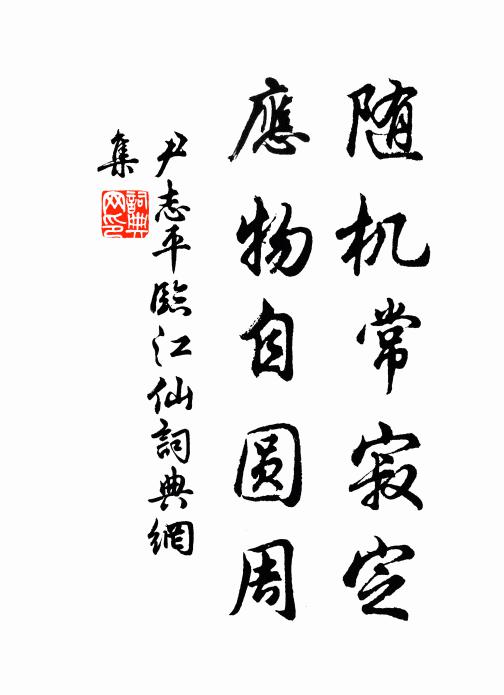 随机常寂定
應物自圆周
尹志平臨江仙詞典網
集
詞典网印